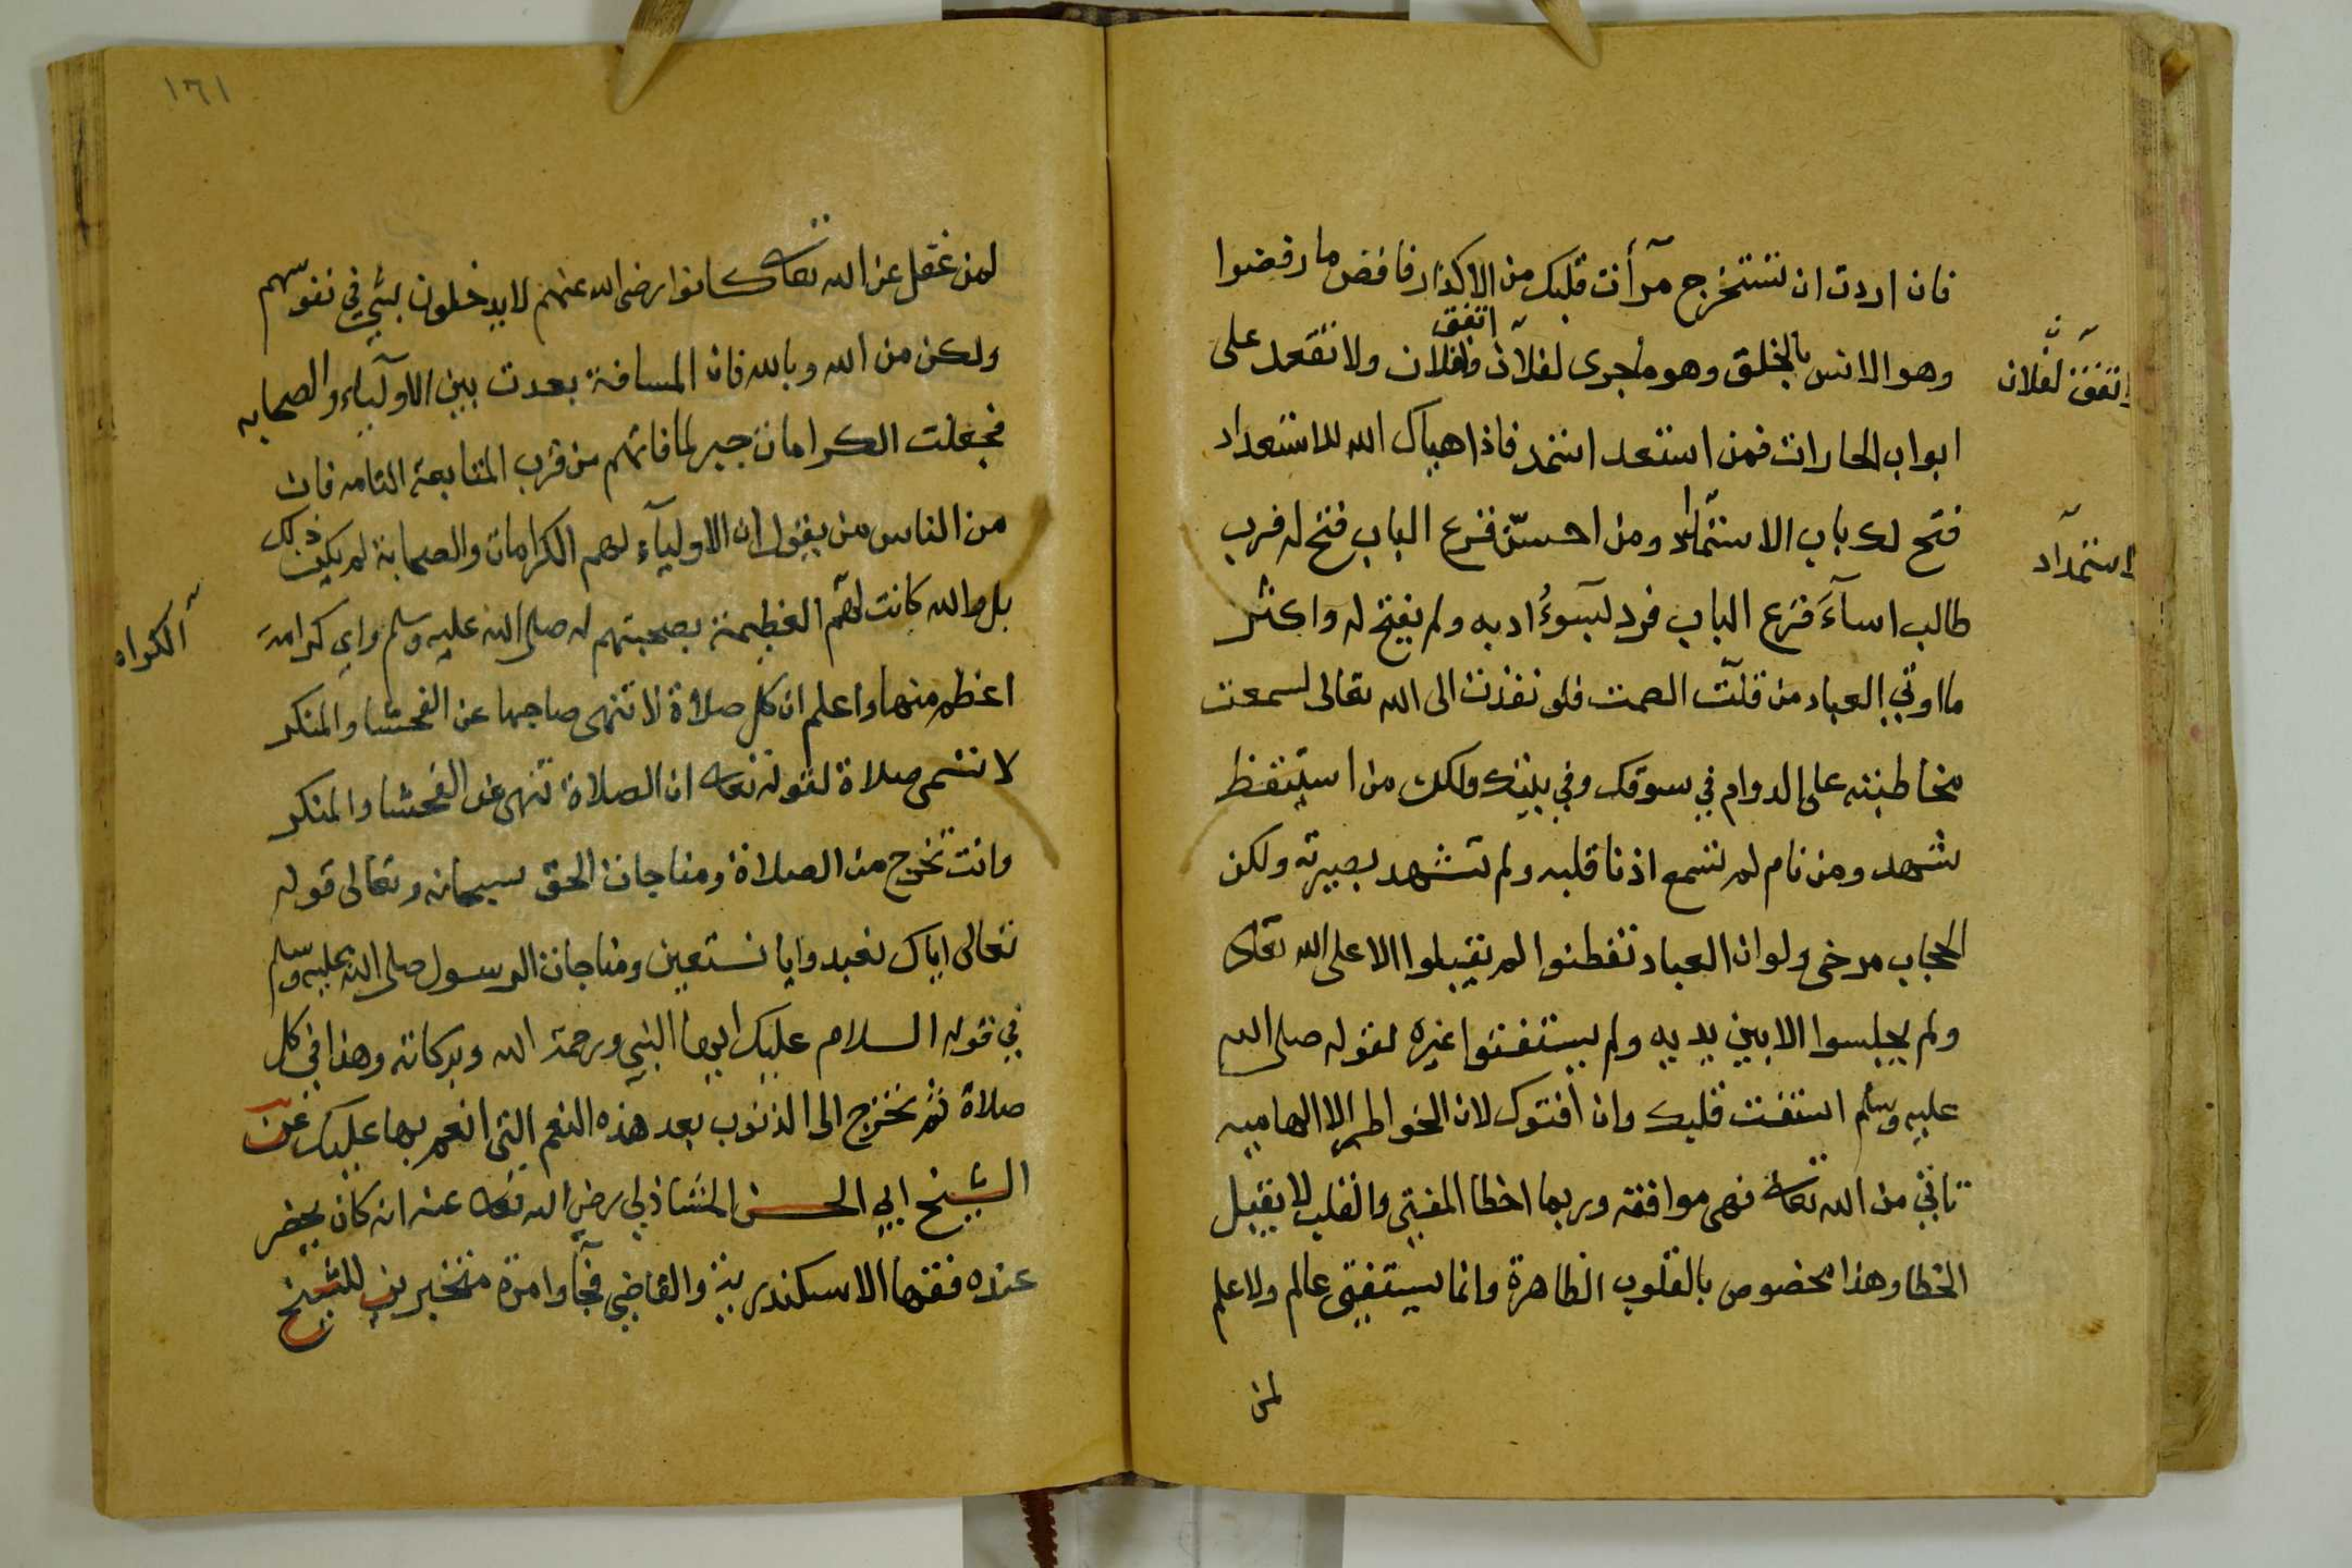 فان اردت ان تستخرج مرأت قلبك من الاكدار فافض ما رفضوا
وهو الانس بالخلق وهو ماجرى لفلان اتفق لفلان ولا تقعد على
اتفق لفلان
ابواب الحارات فمن استعد استمد فاذا هياك الله للاستعداد
فتح لك باب الاستمداد ومن احسن قرع الباب فتح له فرب
استمداد
طالب اساء قرع الباب فرد لسوء ادبه ولم يفتح له واكثر
ما اوتي العباد من قلت الصمت فلو نفذت الى الله تعالى لسمعت
مخاطبته على الدوام في سوقك وفي بيتك ولكن من استيقظ
شهد ومن نام لم تسمع اذنا قلبه ولم تشهد بصيرته ولكن
الحجاب مرخى ولو ان العباد تفطنوا لم يقبلوا الا على الله تعالى
ولم يجلسوا الا بين يديه ولم يستفتوا غيره لقوله صلى الله
عليه وسلم استفت قلبك وان افتوك لان الخواطر الالهاميه
تاتي من الله تعالى فهى موافقه وربما اخطا المفتي والقلب لا يقبل
الخطا وهذا مخصوص بالقلوب الطاهرة وانما يستفتى عالم ولا علم
لمن
١٦١
لمن غفل عن الله تعالى كانوا رضى الله عنهم لا يدخلون بشئ في نفوسهم
ولكن من الله وبالله فان المسافة بعدت بين الاولياء والصحابه
فجعلت الكرامات جبر لما فاتهم من قرب المتابعة التامه فان
من الناس من يقول ان الاولياء لهم الكرامات والصحابة لم يكن ذلك
بل والله كانت لهم العظيمة بصحبتهم له صلى الله عليه وسلم واي كرامة
الكراه
اعظم منها واعلم ان كل صلاة لا تنهى صاحبها عن الفحشا والمنكر
لا تسمى صلاة لقوله تعالى ان الصلاة تنهى عن الفحشا والمنكر
وانت تخرج من الصلاة ومناجات الحق سبحانه وتعالى قوله
تعالى اياك نعبد وايا نستعين ومناجات الرسول صلى الله عليه وسلم
في قوله السلام عليك ايها النبي ورحمة الله وبركاته وهذا في كل
صلاة ثم تخرج الى الذنوب بعد هذه النعم التي انعم بها عليك عن
الشيخ ابي الحسن الشاذلي رضي الله تعالى عنه انه كان يحضر
عنده فقها الاسكندرية والقاضي فجاوا مرة متخبرين للشيخ